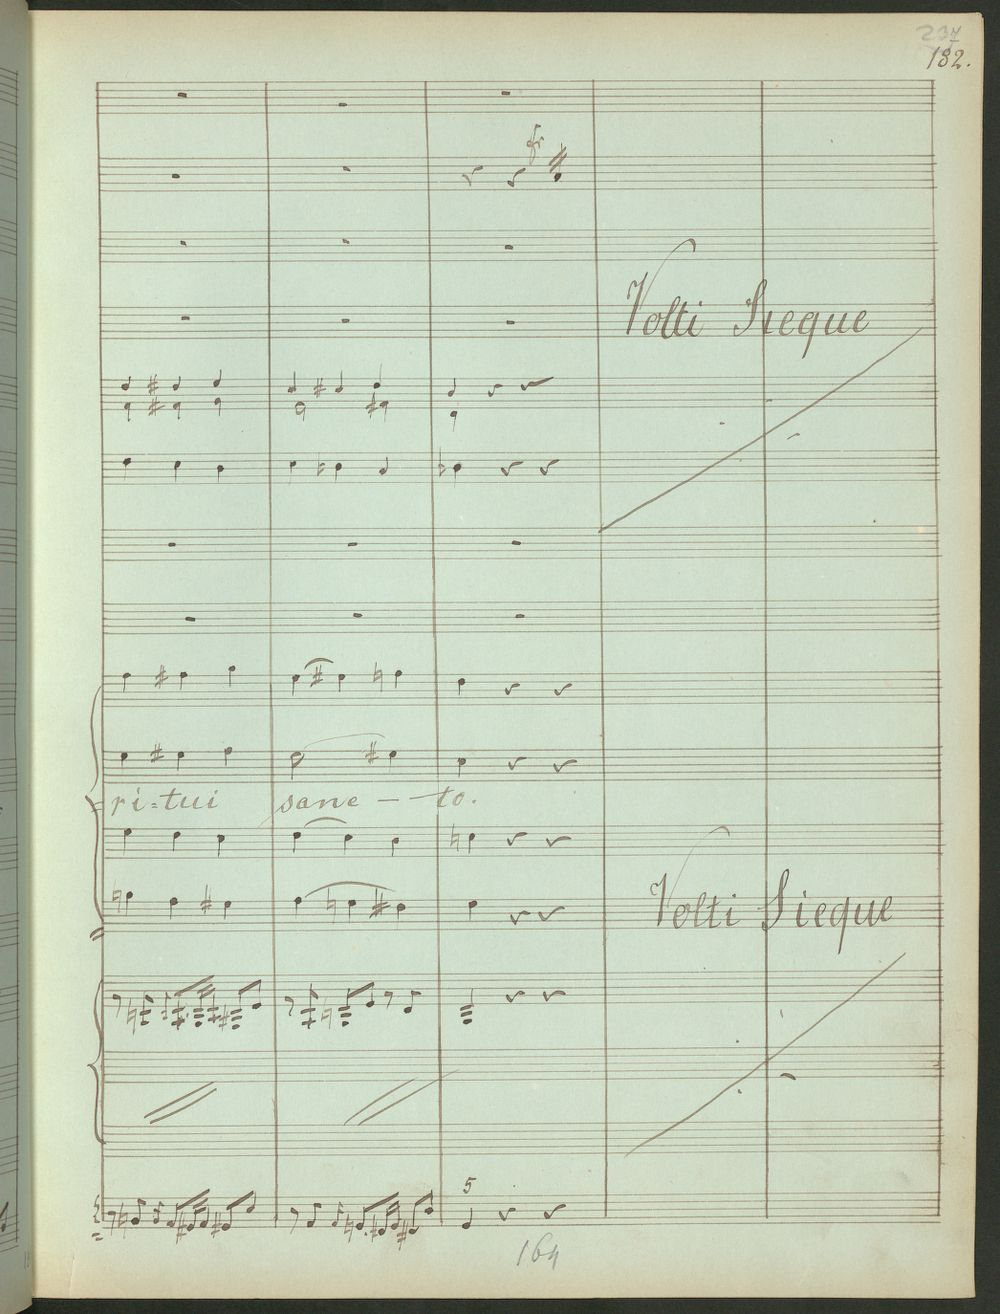 237
132.
Volti Sieque
ri=tui sanc — to.
Volti Sieque
5
164